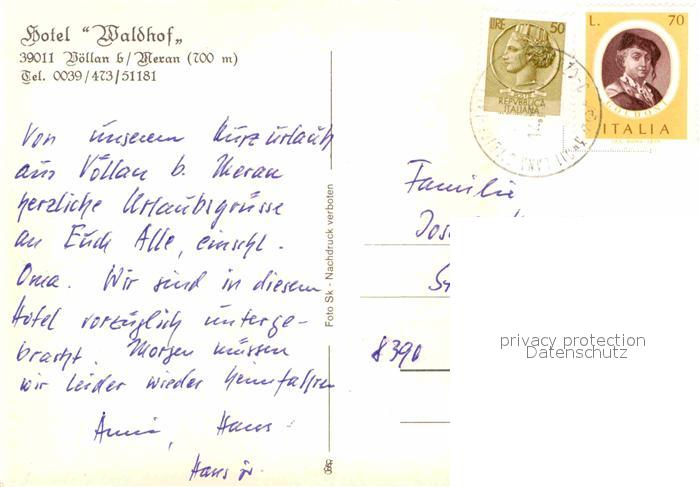 Hotel "Waldhof„
39011 Völlan b/Meran (700 m)
Tel. 0039/473/51181
LIRE 50
POSTE
REPVBBLICA
ITALIANA
L. 70
GOLDONI
ITALIA
Von unserem Kurzurlaub
aus Völlan b. Meran
herzliche Urlaubsgrüsse
an Euch Alle, einschl.
Oma. Wir sind in diesem
Hotel vorzüglich unterge-
bracht. Morgen müssen
wir leider wieder heimfahren
Anni, Hans
Hans jr.
Foto Sk - Nachdruck verboten
Familie
Jos
8390
privacy protection
Datenschutz